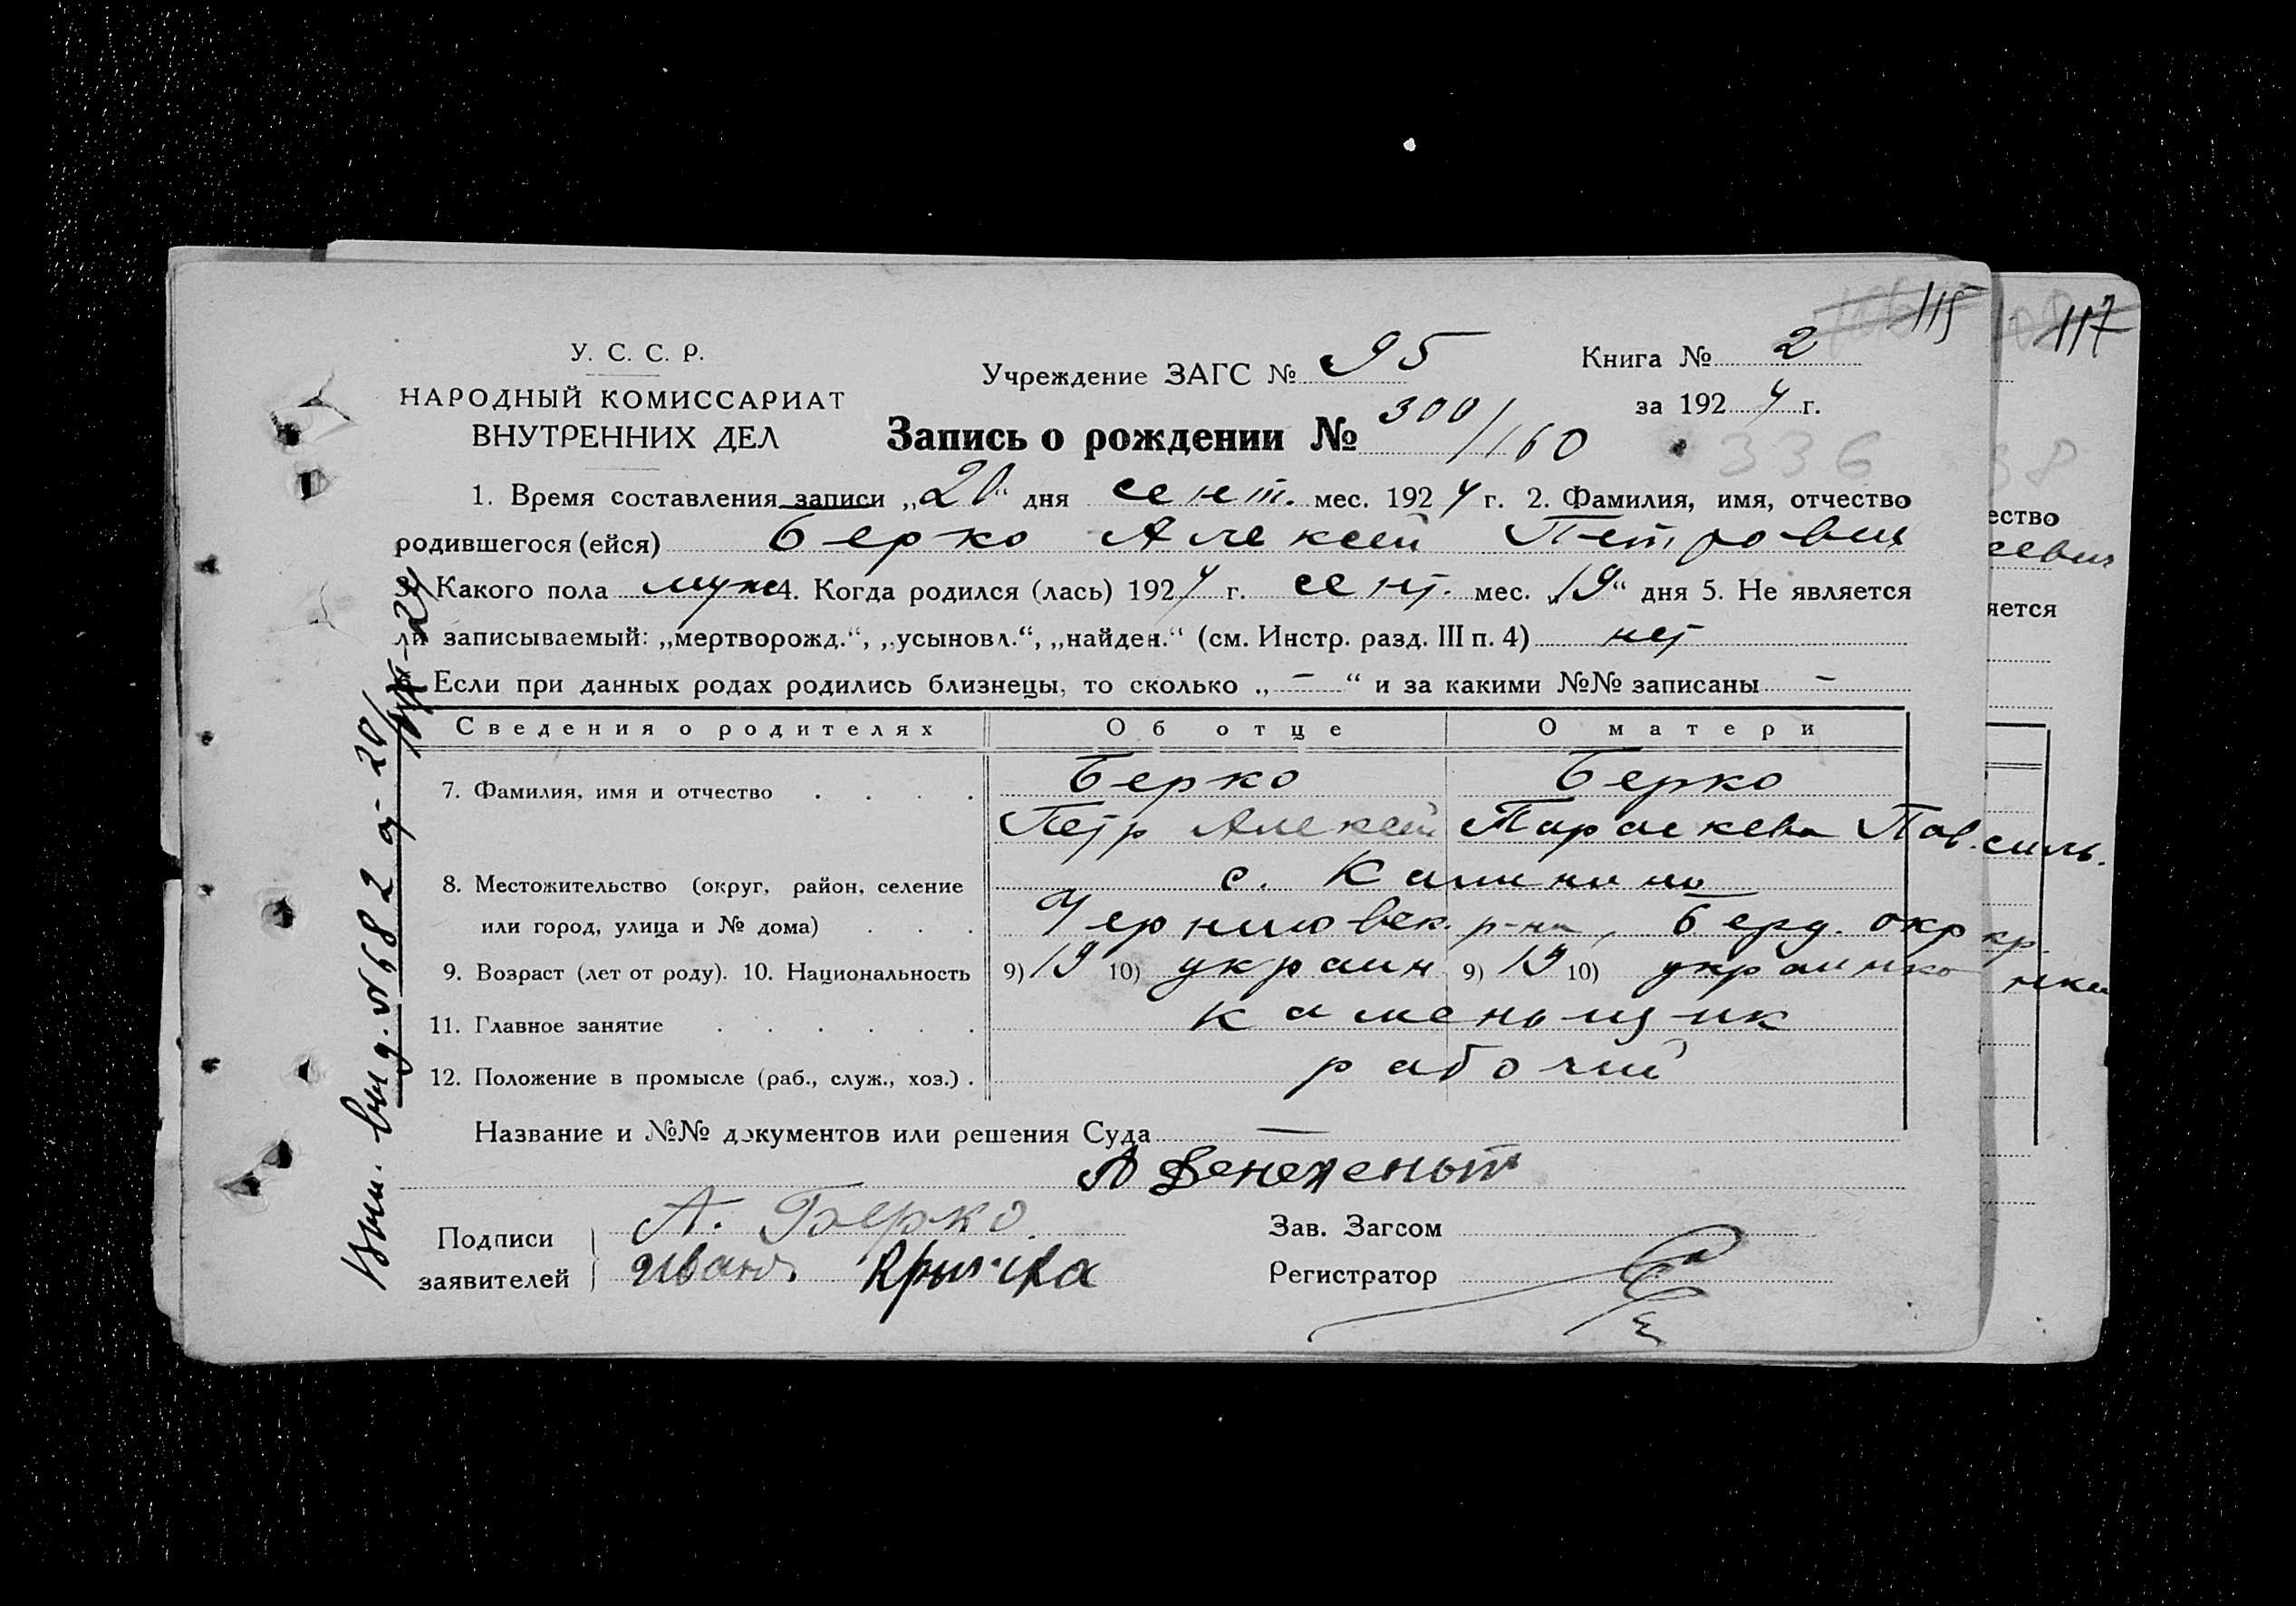 115
117
У. С. С. Р.
НАРОДНЫЙ КОМИССАРИАТ
ВНУТРЕННИХ ДЕЛ
Учреждение ЗАГС № 95
Книга № 2
за 1924 г.
Запись о рождении № 300/160
336
1. Время составления записи „20“ дня сент. мес. 1924 г. 2. Фамилия, имя, отчество
родившегося (ейся) Берко Алексей Петрович
3. Какого пола муж 4. Когда родился (лась) 1924 г. сент. мес. „19“ дня 5. Не является
ли записываемый: „мертворожд.“, „усыновл.“, „найден.“ (см. Инстр. разд. III п. 4) нет
Если при данных родах родились близнецы, то сколько „–“ и за какими №№ записаны –
Сведения о родителях Об отце О матери
7. Фамилия, имя и отчество Берко Берко
Петр Алексей Параскева Пав.
8. Местожительство (округ, район, селение с. Калинино
или город, улица и № дома) Черниговск. р-на, Берд. окр
9. Возраст (лет от роду). 10. Национальность 9) 19 10) украин 9) 19 10) украинка
11. Главное занятие каменьщик
12. Положение в промысле (раб., служ., хоз.) рабочий
Название и №№ документов или решения Суда —
Подписи заявителей А. Берко
Иван
Зав. Загсом
Регистратор
ество
яется